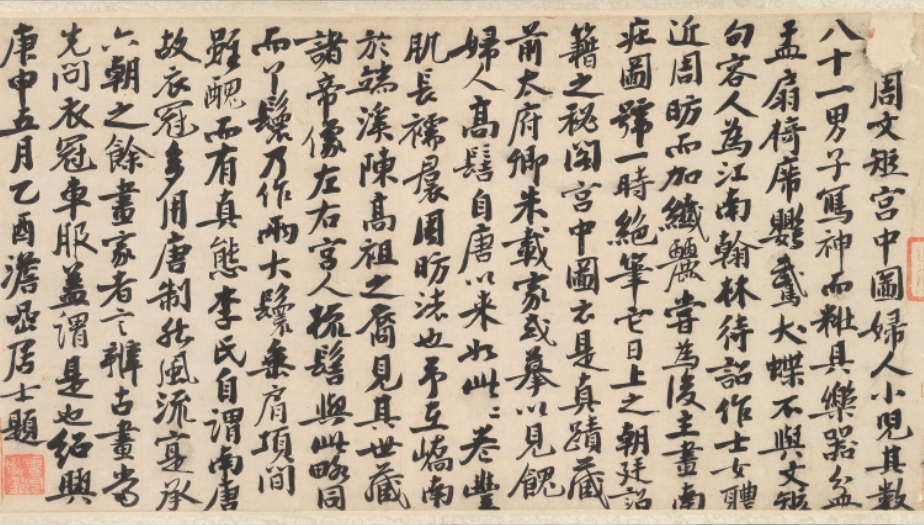 周文矩宮中圖婦人小兒其數
八十一男子寫神而粧具樂器盆
盂扇椅席鸚鵡犬蝶不與文矩
句容人為江南翰林待詔作士女體
近周昉而加纖麗嘗為後主畫南
庄圖號一時絶筆它日上之朝廷詔
籍之秘閣宮中圖云是真蹟藏
前太府卿朱載家或摹以見餽
婦人高髻自唐以来如此〻卷豐
肌長襦裠固昉法也予在嶠南
於端溪陳高祖之裔見其世藏
諸帝像左右宮人梳髻與此略同
而丫鬟乃作兩大鬟垂肩項間
雖醜而有真態李氏自謂南唐
故衣冠多用唐制然風流寔承
六朝之餘畫家者言辨古畫當
先問衣冠車服蓋謂是也紹興
庚申五月乙酉澹喦居士題